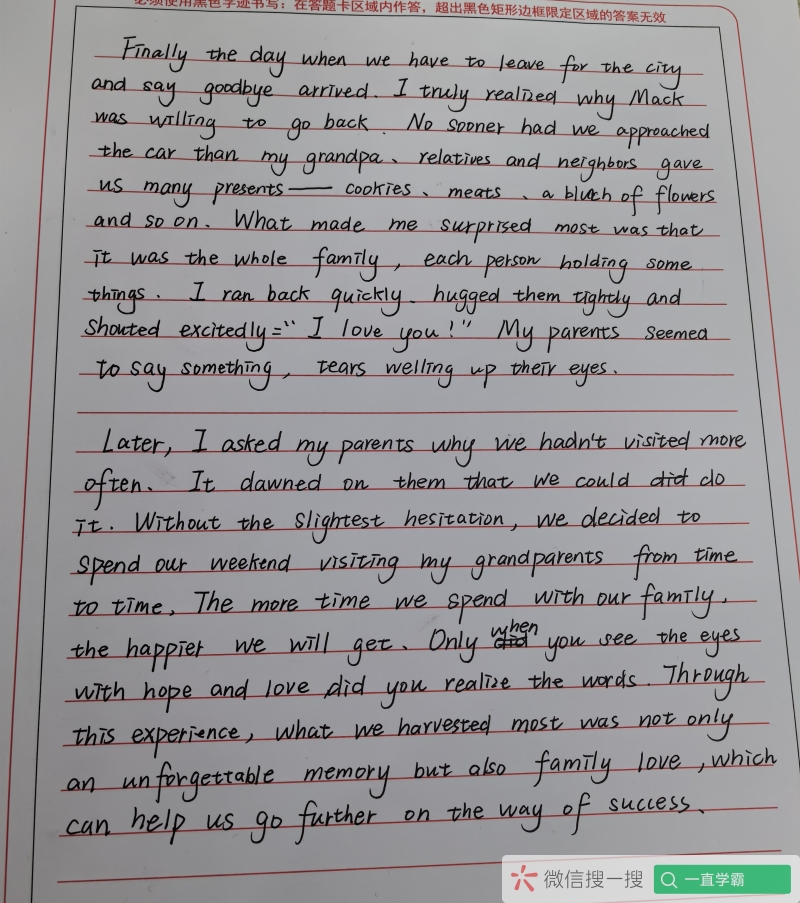 必须使用黑色字迹书写：在答题卡区域内作答，超出黑色矩形边框限定区域的答案无效
Finally the day when we have to leave for the city
and say goodbye arrived. I truly realized why Mack
was willing to go back. No sooner had we approached
the car than my grandpa、relatives and neighbors gave
us many presents —— cookies、meats、a bluch of flowers
and so on. What made me surprised most was that
it was the whole family, each person holding some
things. I ran back quickly、hugged them tightly and
shouted excitedly="I love you!" My parents seemed
to say something, tears welling up their eyes.
Later, I asked my parents why we hadn't visited more
often. It dawned on them that we could did do
it. Without the slightest hesitation, we decided to
spend our weekend visiting my grandparents from time
to time. The more time we spend with our family,
the happier we will get. Only when you see the eyes
with hope and love did you realize the words. Through
this experience, what we harvested most was not only
an unforgettable memory but also family love, which
can help us go further on the way of success.
微信搜一搜 一直学霸